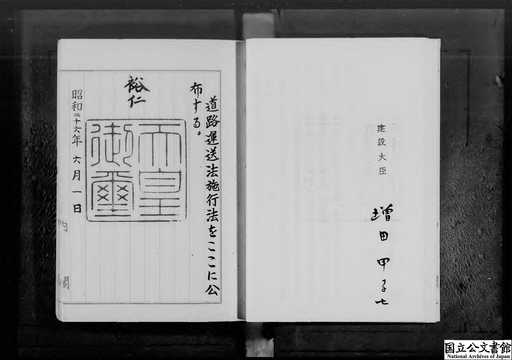 道路運送法施行法をここに公
布する。
裕仁
天皇
御璽
昭和二十六年六月一日
建設大臣
増田甲子七
国立公文書館
National Archives of Japan